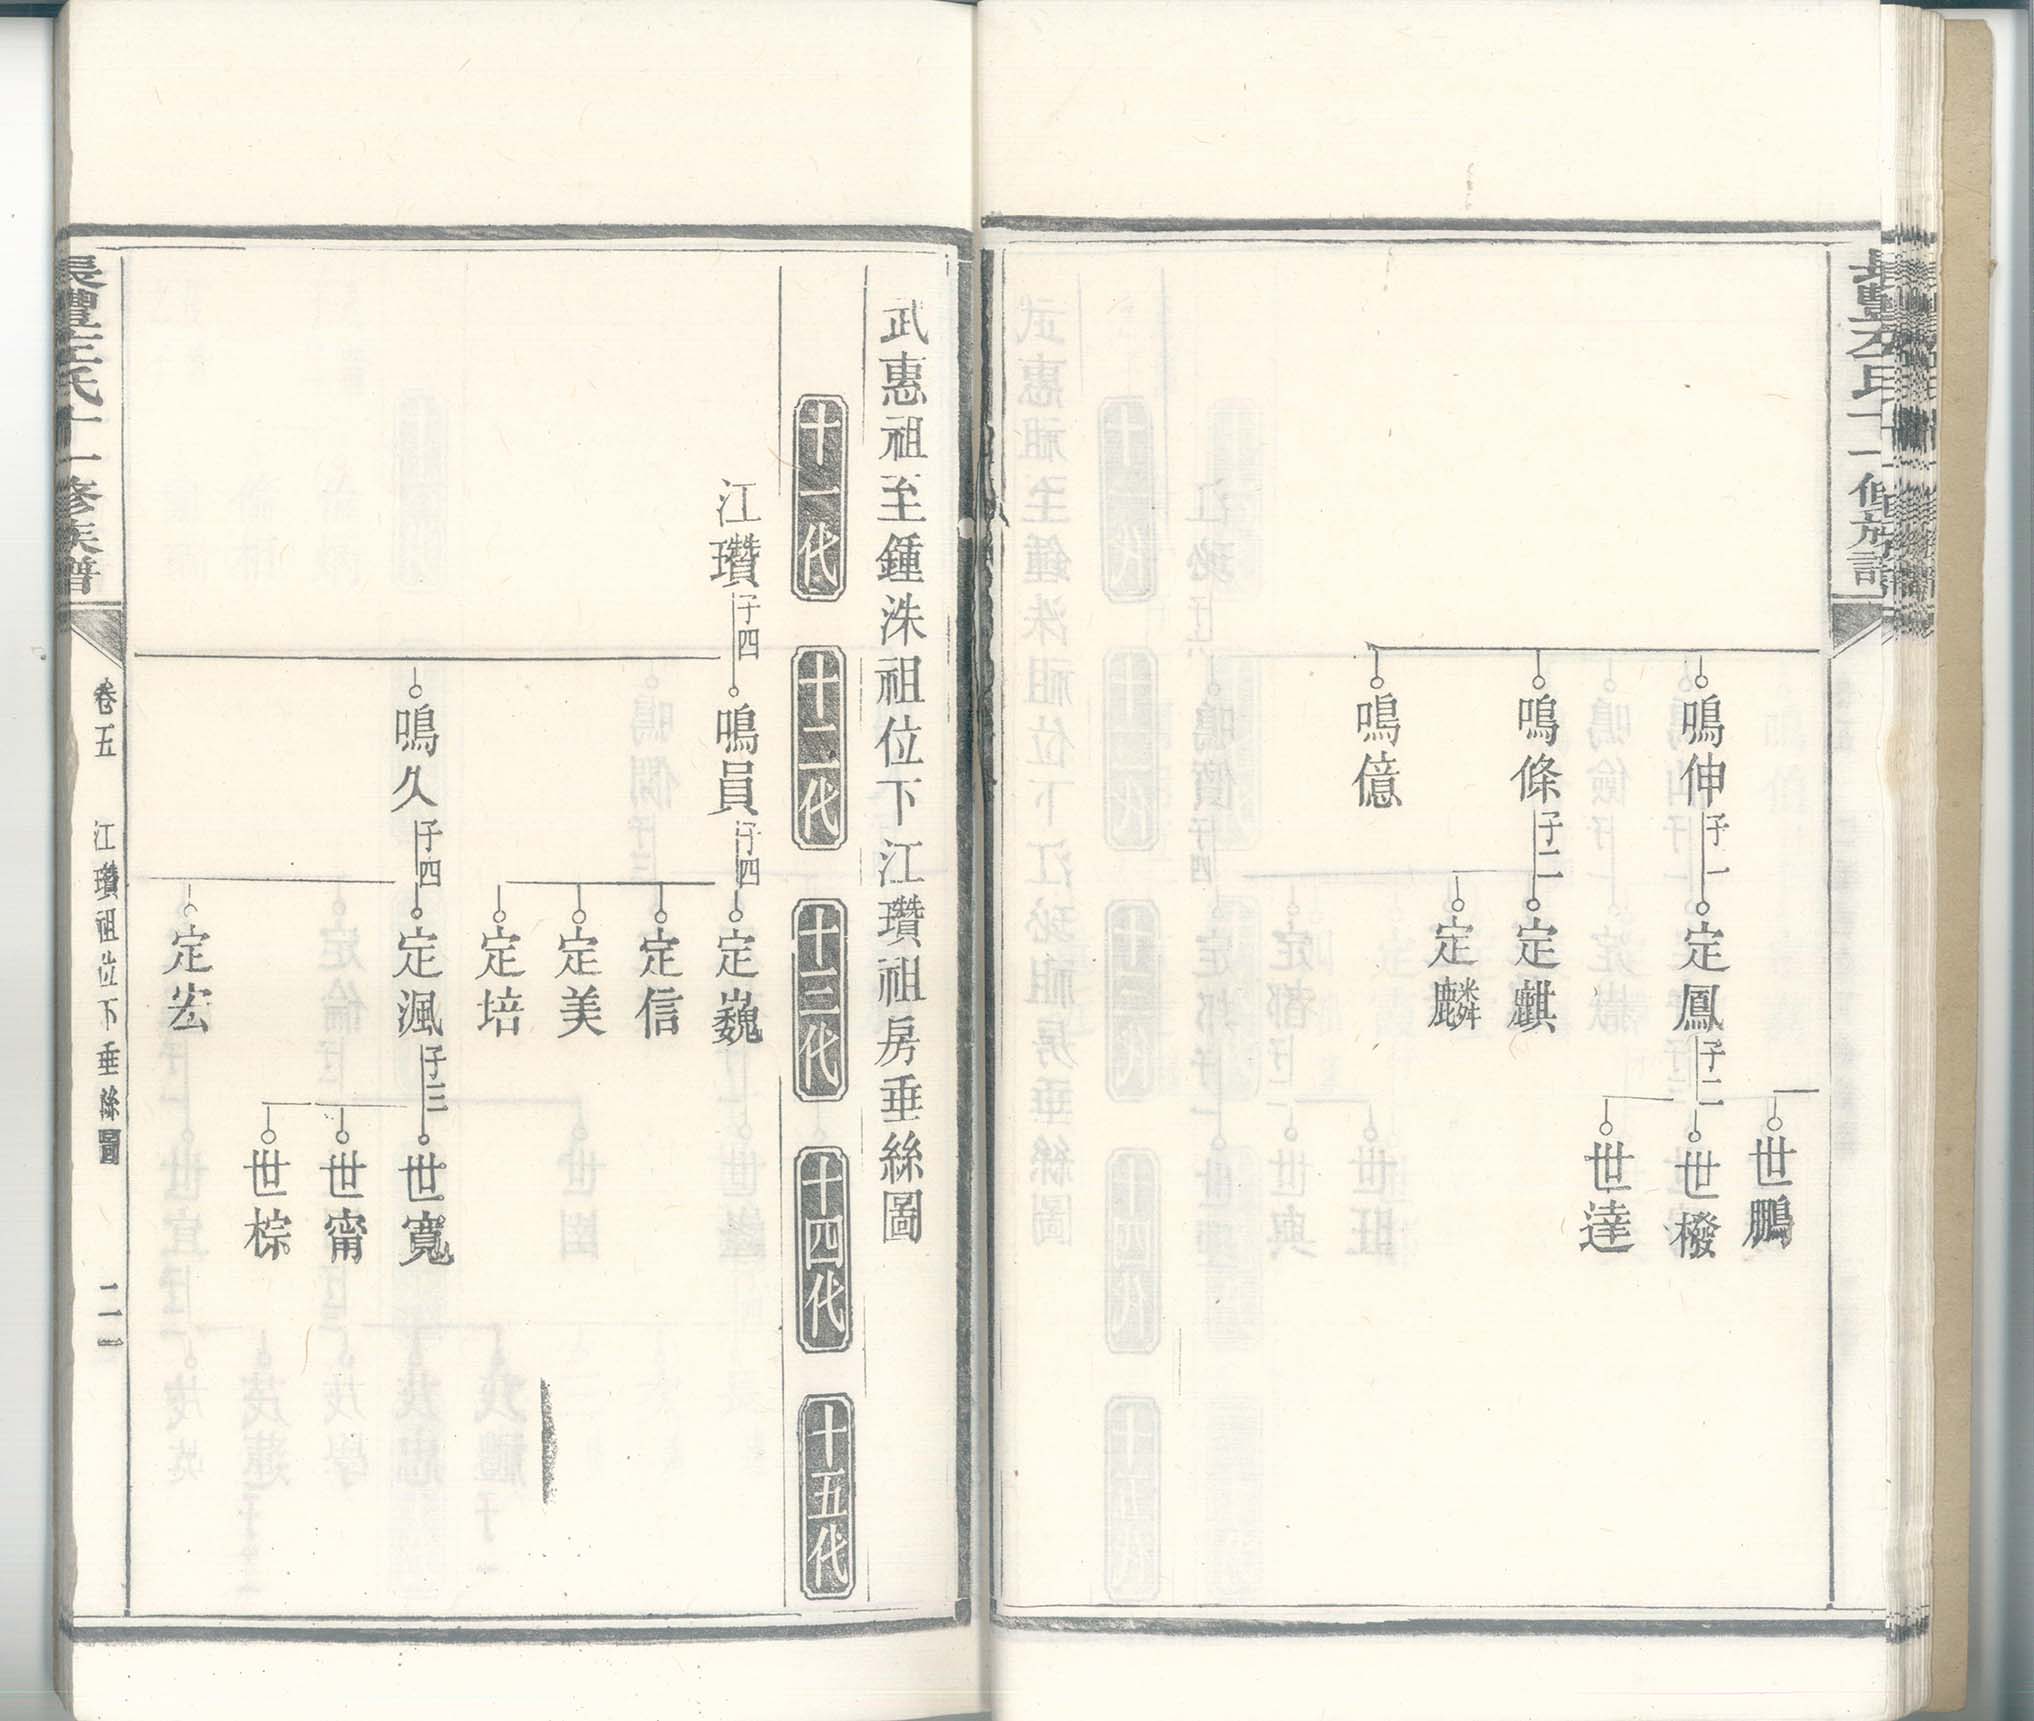 鳴伸子一
鳴條子二
鳴億
定鳳子二
定麒
定麟
世鵬
世橃
世達
武惠祖至鍾洙祖位下江瓚祖房垂絲圖
十一代
十二代
十三代
十四代
十五代
江瓚子四
鳴員子四
鳴久子四
定巍
定信
定美
定培
定渢子三
定宏
世寬
世甯
世棕
氏十一修族譜
卷五
江瓚祖位下垂絲圖